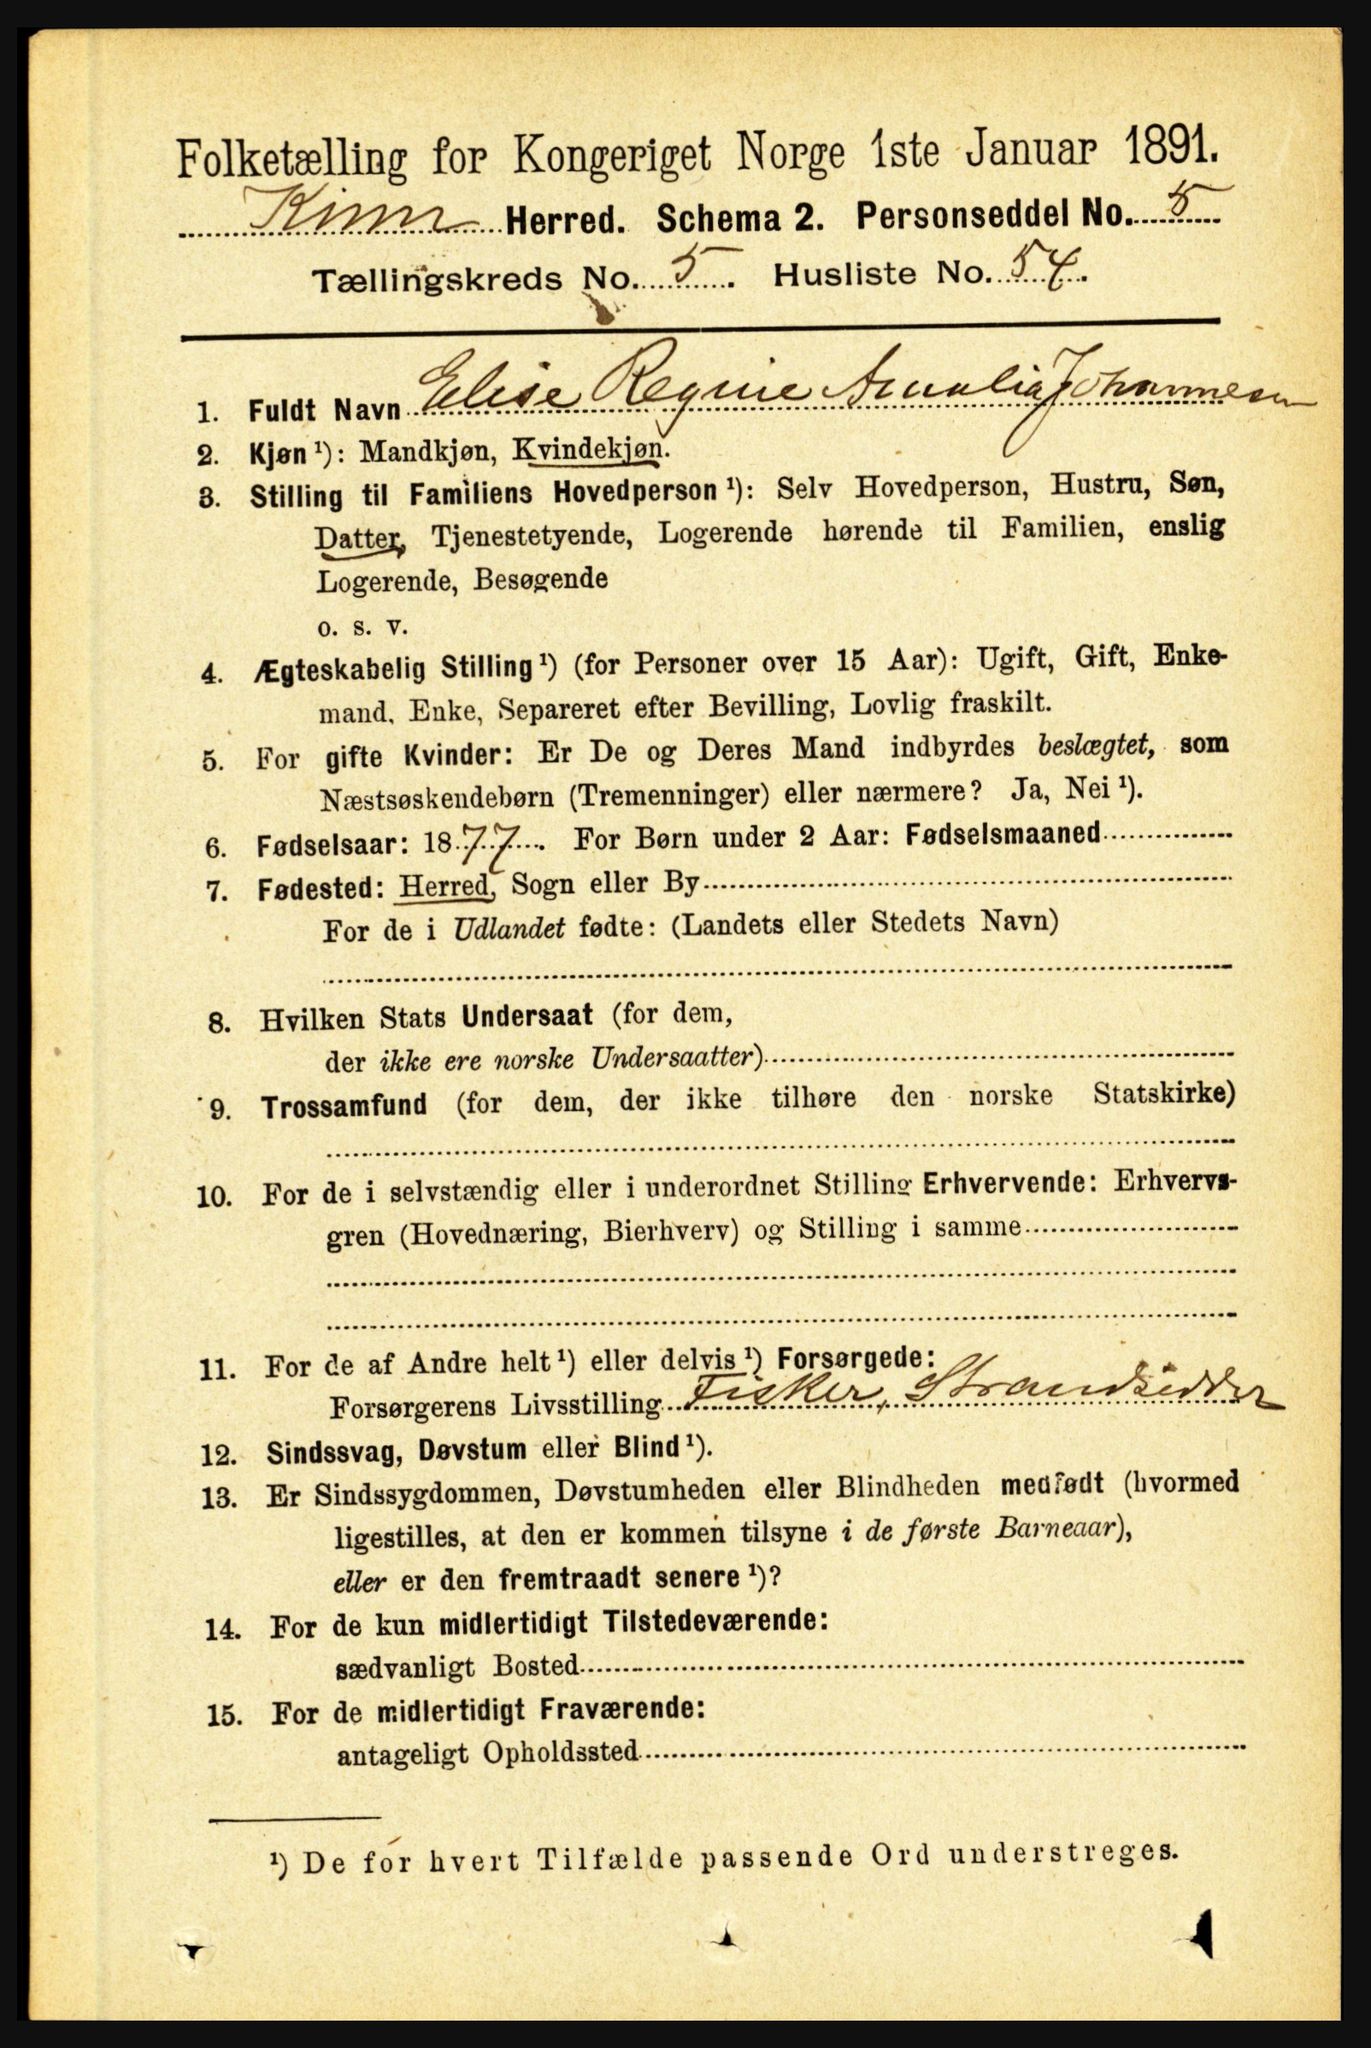 Folketælling for Kongeriget Norge 1ste Januar 1891.
Kinn Herred. Schema 2. Personseddel No. 5
Tællingskreds No. 5. Husliste No. 54.
1. Fuldt Navn Elise Regine Amalia Johannesen
2. Kjøn ¹): Mandkjøn, Kvindekjøn.
3. Stilling til Familiens Hovedperson ¹): Selv Hovedperson, Hustru, Søn,
Datter, Tjenestetyende, Logerende hørende til Familien, enslig
Logerende, Besøgende
o. s. v.
4. Ægteskabelig Stilling ¹) (for Personer over 15 Aar): Ugift, Gift, Enke-
mand, Enke, Separeret efter Bevilling, Lovlig fraskilt.
5. For gifte Kvinder: Er De og Deres Mand indbyrdes beslægtet, som
Næstsøskendebørn (Tremenninger) eller nærmere? Ja, Nei ¹).
6. Fødselsaar: 1877. For Børn under 2 Aar: Fødselsmaaned
7. Fødested: Herred, Sogn eller By
For de i Udlandet fødte: (Landets eller Stedets Navn)
8. Hvilken Stats Undersaat (for dem,
der ikke ere norske Undersaatter)
9. Trossamfund (for dem, der ikke tilhøre den norske Statskirke)
10. For de i selvstændig eller i underordnet Stilling Erhvervende: Erhvervs-
gren (Hovednæring, Bierhverv) og Stilling i samme
11. For de af Andre helt ¹) eller delvis ¹) Forsørgede:
Forsørgerens Livsstilling Fisker, Strandsidder
12. Sindssvag, Døvstum eller Blind ¹).
13. Er Sindssygdommen, Døvstumheden eller Blindheden medfødt (hvormed
ligestilles, at den er kommen tilsyne i de første Barneaar),
eller er den fremtraadt senere ¹)?
14. For de kun midlertidigt Tilstedeværende:
sædvanligt Bosted
15. For de midlertidigt Fraværende:
antageligt Opholdssted
¹) De for hvert Tilfælde passende Ord understreges.